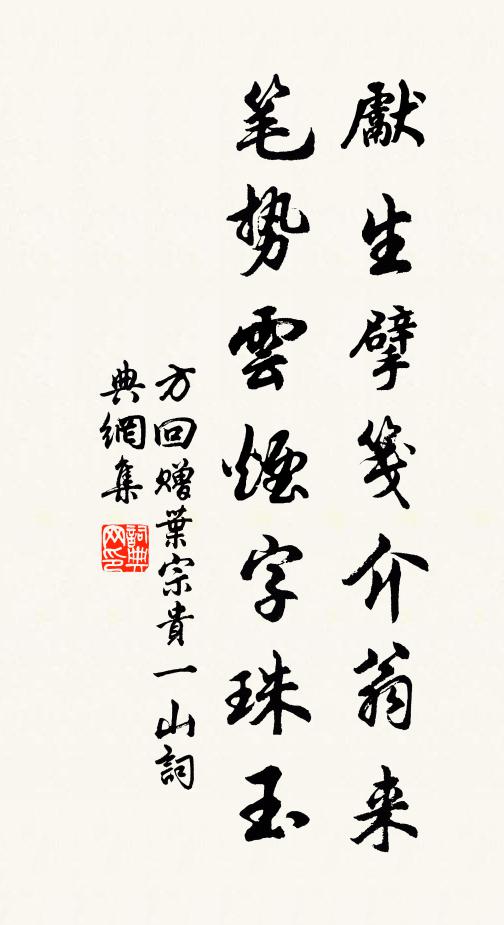 獻生擘箋介翁来
笔势雲煙字珠玉
方回赠葉宗貴一山詞
典網集
詞典网印